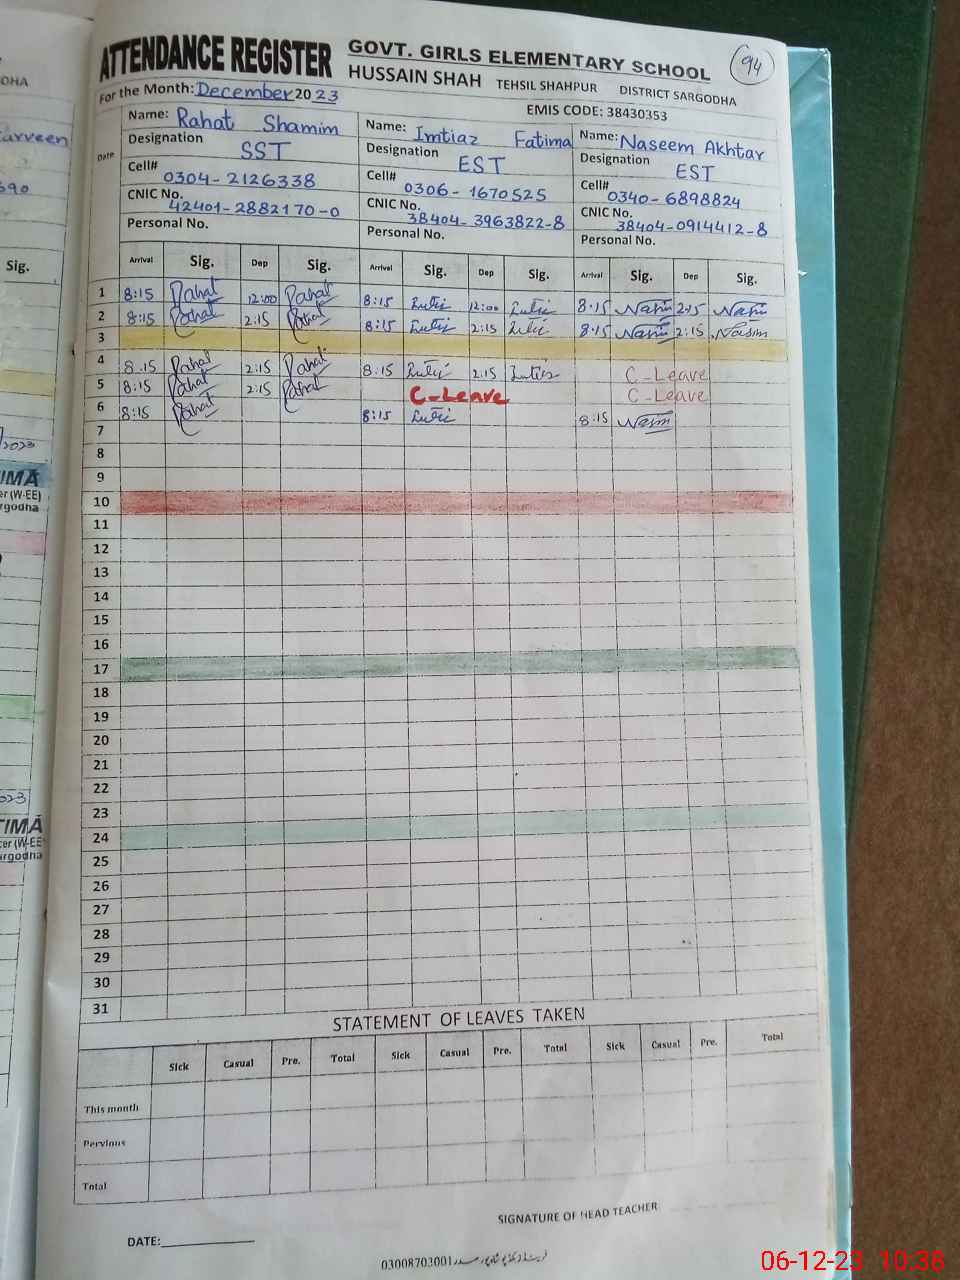 ATTENDANCE REGISTER GOVT. GIRLS ELEMENTARY SCHOOL 94
HUSSAIN SHAH TEHSIL SHAHPUR DISTRICT SARGODHA
For the Month: December 2023 EMIS CODE: 38430353
Date Name: Rahat Shamim Name: Imtiaz Fatima Name: Naseem Akhtar
Designation SST Designation EST Designation EST
Cell# 0304-2126338 Cell# 0306-1670525 Cell# 0340-6898824
CNIC No. 42401-2882170-0 CNIC No. 38404-3963822-8 CNIC No. 38404-0914412-8
Personal No. Personal No. Personal No.
Arrival Sig. Dep Sig. Arrival Sig. Dep Sig. Arrival Sig. Dep Sig.
1 8:15 Rahat 12:00 Rahat 8:15 12:00 8:15 Nasim 2:15 Nasim
2 8:15 Rahat 2:15 Rahat 8:15 2:15 8:15 Nasim 2:15 Nasim
3
4 8:15 Rahat 2:15 Rahat 8:15 2:15 C-Leave
5 8:15 Rahat 2:15 Rahat C-Leave C-Leave
6 8:15 Rahat 8:15 8:15 Nasim
7
8
9
10
11
12
13
14
15
16
17
18
19
20
21
22
23
24
25
26
27
28
29
30
31
STATEMENT OF LEAVES TAKEN
Sick Casual Pre. Total Sick Casual Pre. Total Sick Casual Pre. Total
This month
Pervious
Total
SIGNATURE OF HEAD TEACHER
DATE:
03008703001
06-12-23 10:38
ODHA
arveen
690
Sig.
/2023
IMA
er (W-EE)
rgodha
023
TIMA
cer (W-EE)
argodha